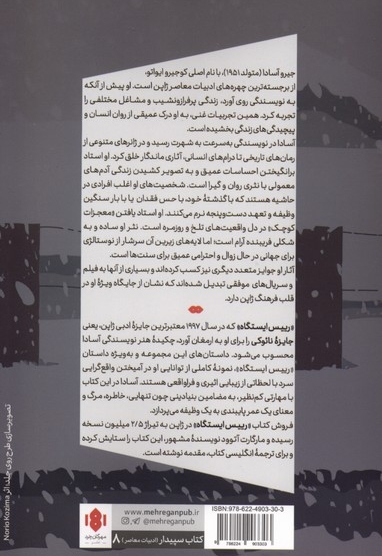 جیرو آسادا (متولد ۱۹۵۱)، با نام اصلی کوجیرو ایواتو،
از برجسته‌ترین چهره‌های ادبیات معاصر ژاپن است. او پیش از آنکه
به نویسندگی روی آورد، زندگی پرفرازونشیب و مشاغل مختلفی را
تجربه کرد. همین تجربیات غنی، به او درک عمیقی از روان انسان و
پیچیدگی‌های زندگی بخشیده است.
آسادا در نویسندگی به‌سرعت به شهرت رسید و در ژانرهای متنوعی از
رمان‌های تاریخی تا درام‌های انسانی، آثاری ماندگار خلق کرد. او استاد
برانگیختن احساسات عمیق و به تصویر کشیدن زندگی آدم‌های
معمولی با نثری روان و گیرا است. شخصیت‌های او اغلب افرادی در
حاشیه هستند که با گذشتهٔ خود، با حس فقدان یا با بار سنگین
وظیفه و تعهد دست‌وپنجه نرم می‌کنند. او استاد یافتن «معجزات
کوچک» در دل واقعیت‌های تلخ و روزمره است. نثر او ساده و به
شکلی فریبنده آرام است؛ اما لایه‌های زیرین آن سرشار از نوستالژی
برای جهانی در حال زوال و احترامی عمیق برای سنت‌ها است.
آثار او جوایز متعدد دیگری نیز کسب کرده‌اند و بسیاری از آنها به فیلم
و سریال‌های موفقی تبدیل شده‌اند که نشان از جایگاه ویژهٔ او در
قلب فرهنگ ژاپن دارد.
«رییس ایستگاه» که در سال ۱۹۹۷ معتبرترین جایزهٔ ادبی ژاپن، یعنی
جایزهٔ نائوکی را برای او به ارمغان آورد، چکیدهٔ هنر نویسندگی آسادا
محسوب می‌شود. داستان‌های این مجموعه و به‌ویژه داستان
«رییس ایستگاه»، نمونهٔ کاملی از توانایی او در آمیختن واقع‌گرایی
سرد با لحظاتی از زیبایی اثیری و فراواقعی هستند. آسادا در این کتاب
با مهارتی کم‌نظیر، به مضامین بنیادینی چون تنهایی، خاطره، مرگ و
معنای یک عمر پایبندی به یک وظیفه می‌پردازد.
فروش کتاب «رییس ایستگاه» در ژاپن به تیراژ ۲/۵ میلیون نسخه
رسیده و مارگارت آتوود نویسندهٔ مشهور، این کتاب را ستایش کرده
و برای ترجمهٔ انگلیسی کتاب، مقدمه نوشته است.
www.mehreganpub.ir
@mehreganpub
کتاب سپیدار (ادبیات معاصر) ۸
ISBN: 978-622-4903-30-3
تصویرسازی طرح روی جلد: اثر Norio Kozima